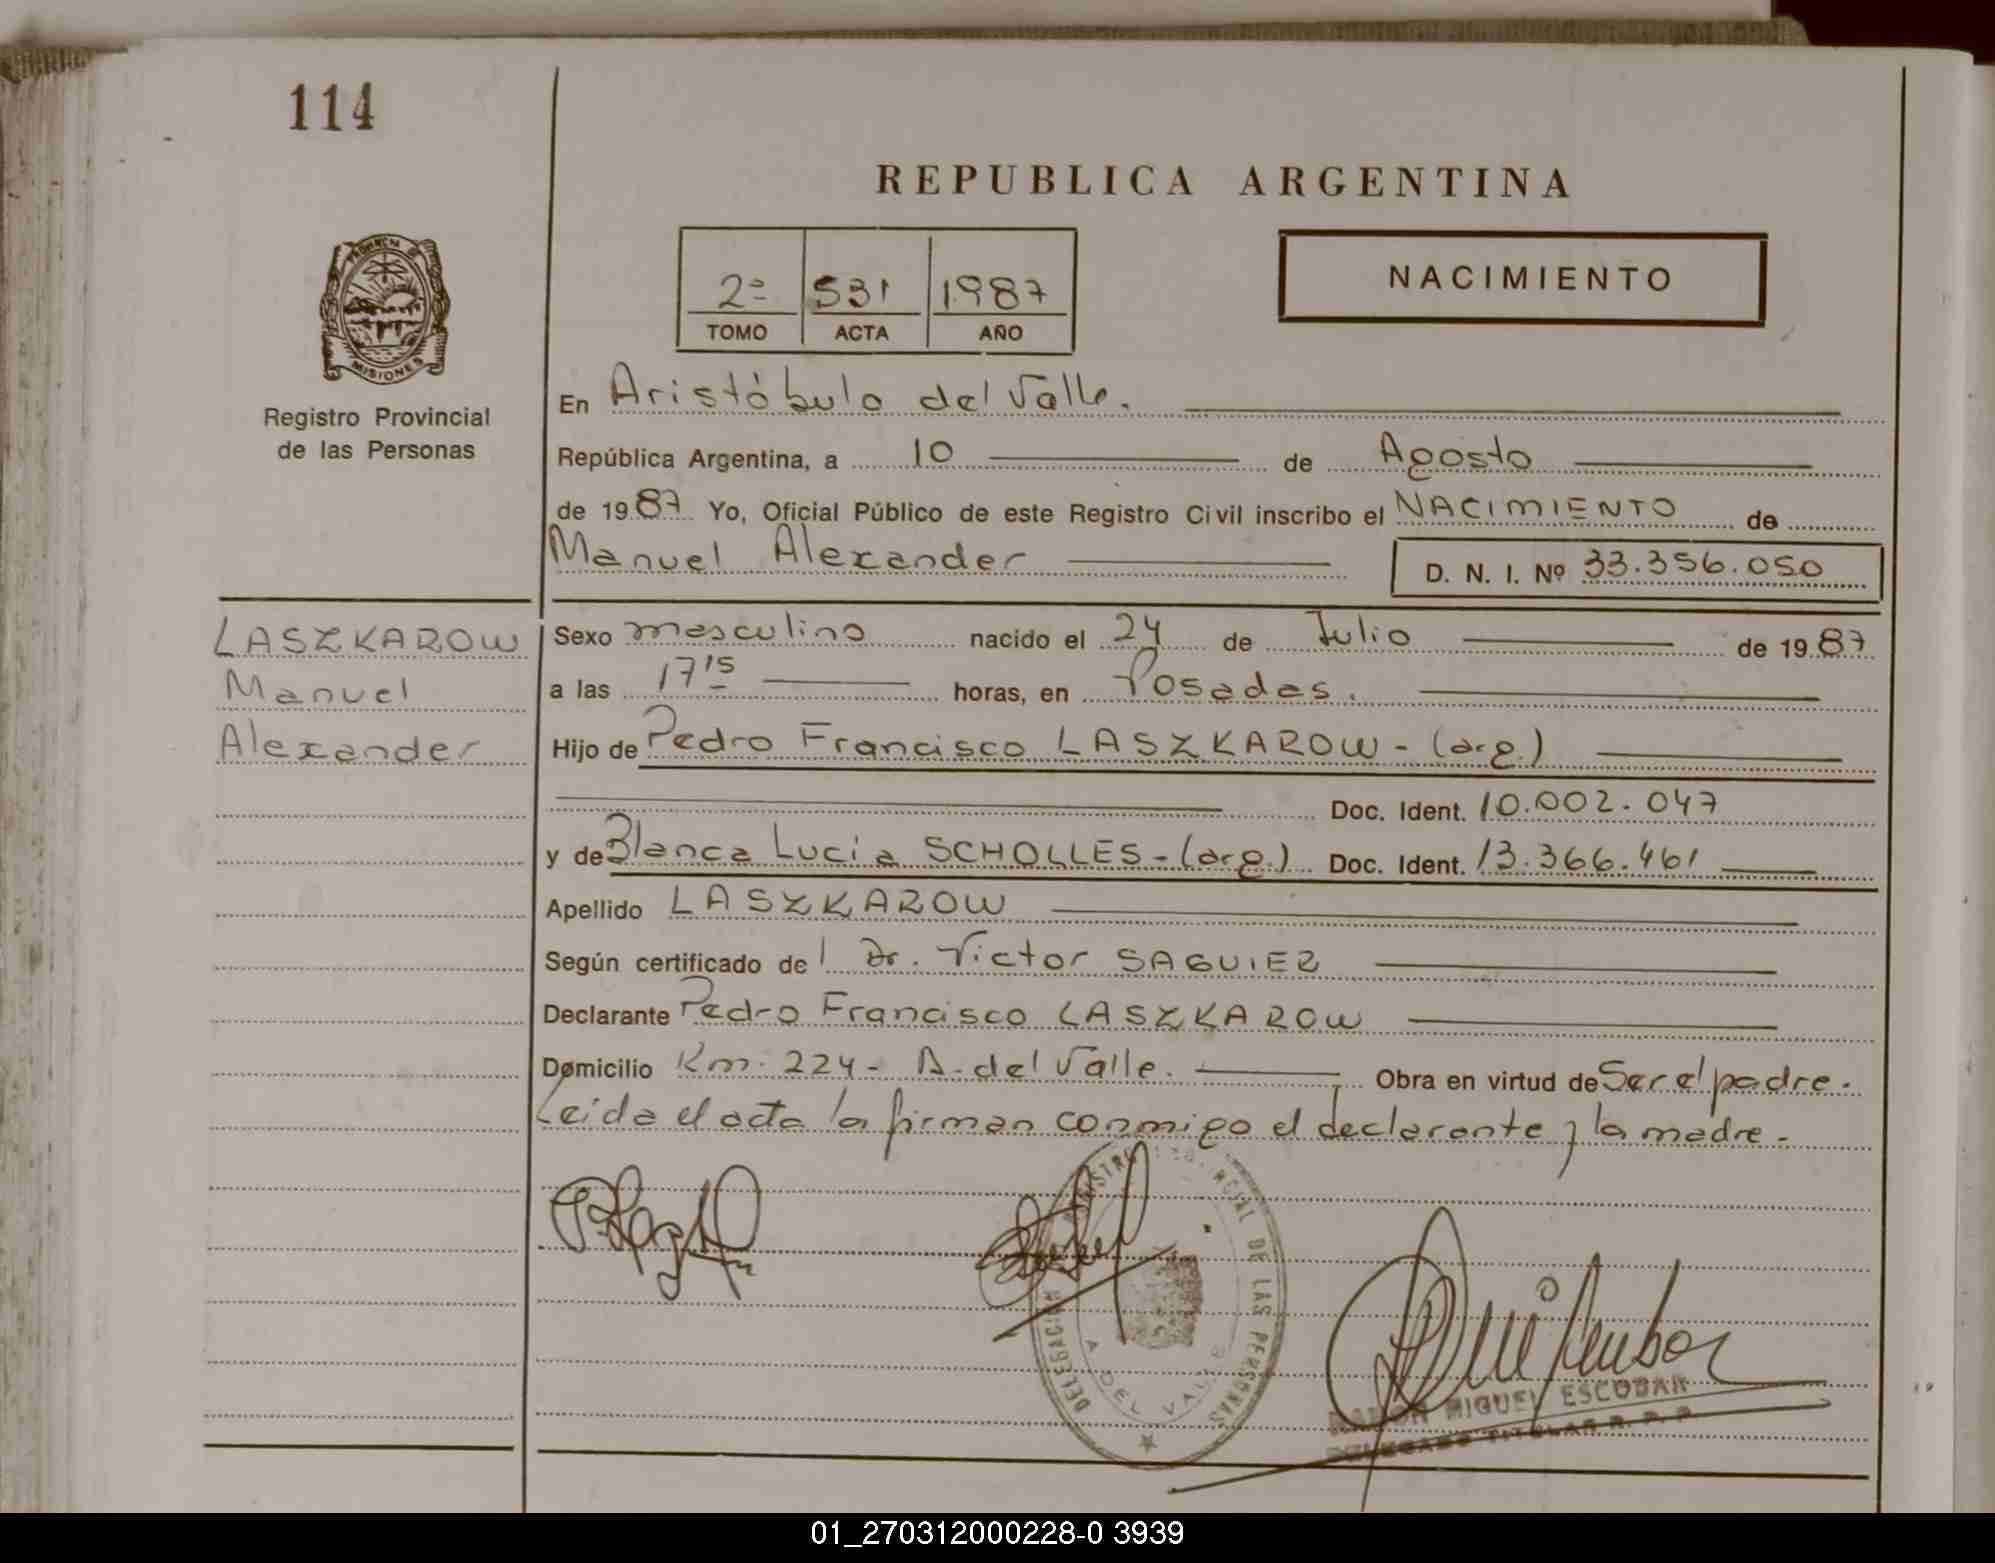 114
REPUBLICA ARGENTINA
PROVINCIA DE
MISIONES
Registro Provincial
de las Personas
2º 531 1987
TOMO ACTA AÑO
NACIMIENTO
En Aristóbulo del Valle.
República Argentina, a 10 de Agosto
de 1987 Yo, Oficial Público de este Registro Civil inscribo el NACIMIENTO de
Manuel Alexander D. N. I. Nº 33.356.050
LASZKAROW
Manuel
Alexander
Sexo masculino nacido el 24 de Julio de 1987
a las 17 15 horas, en Posadas.
Hijo de Pedro Francisco LASZKAROW - (arg.)
Doc. Ident. 10.002.047
y de Blanca Lucia SCHOLLES - (arg.) Doc. Ident. 13.366.461
Apellido LASZKAROW
Según certificado de l Dr. Victor SAGUIER
Declarante Pedro Francisco LASZKAROW
Domicilio Km. 224 - A. del Valle. Obra en virtud de Ser el padre.
Leida el acta la firman conmigo el declarante y la madre.
DELEGACION REGISTRO DE LAS PERSONAS
A. DEL VALLE
RAMON MIGUEL ESCOBAR
DELEGADO TITULAR R. P. P.
01_270312000228-0 3939